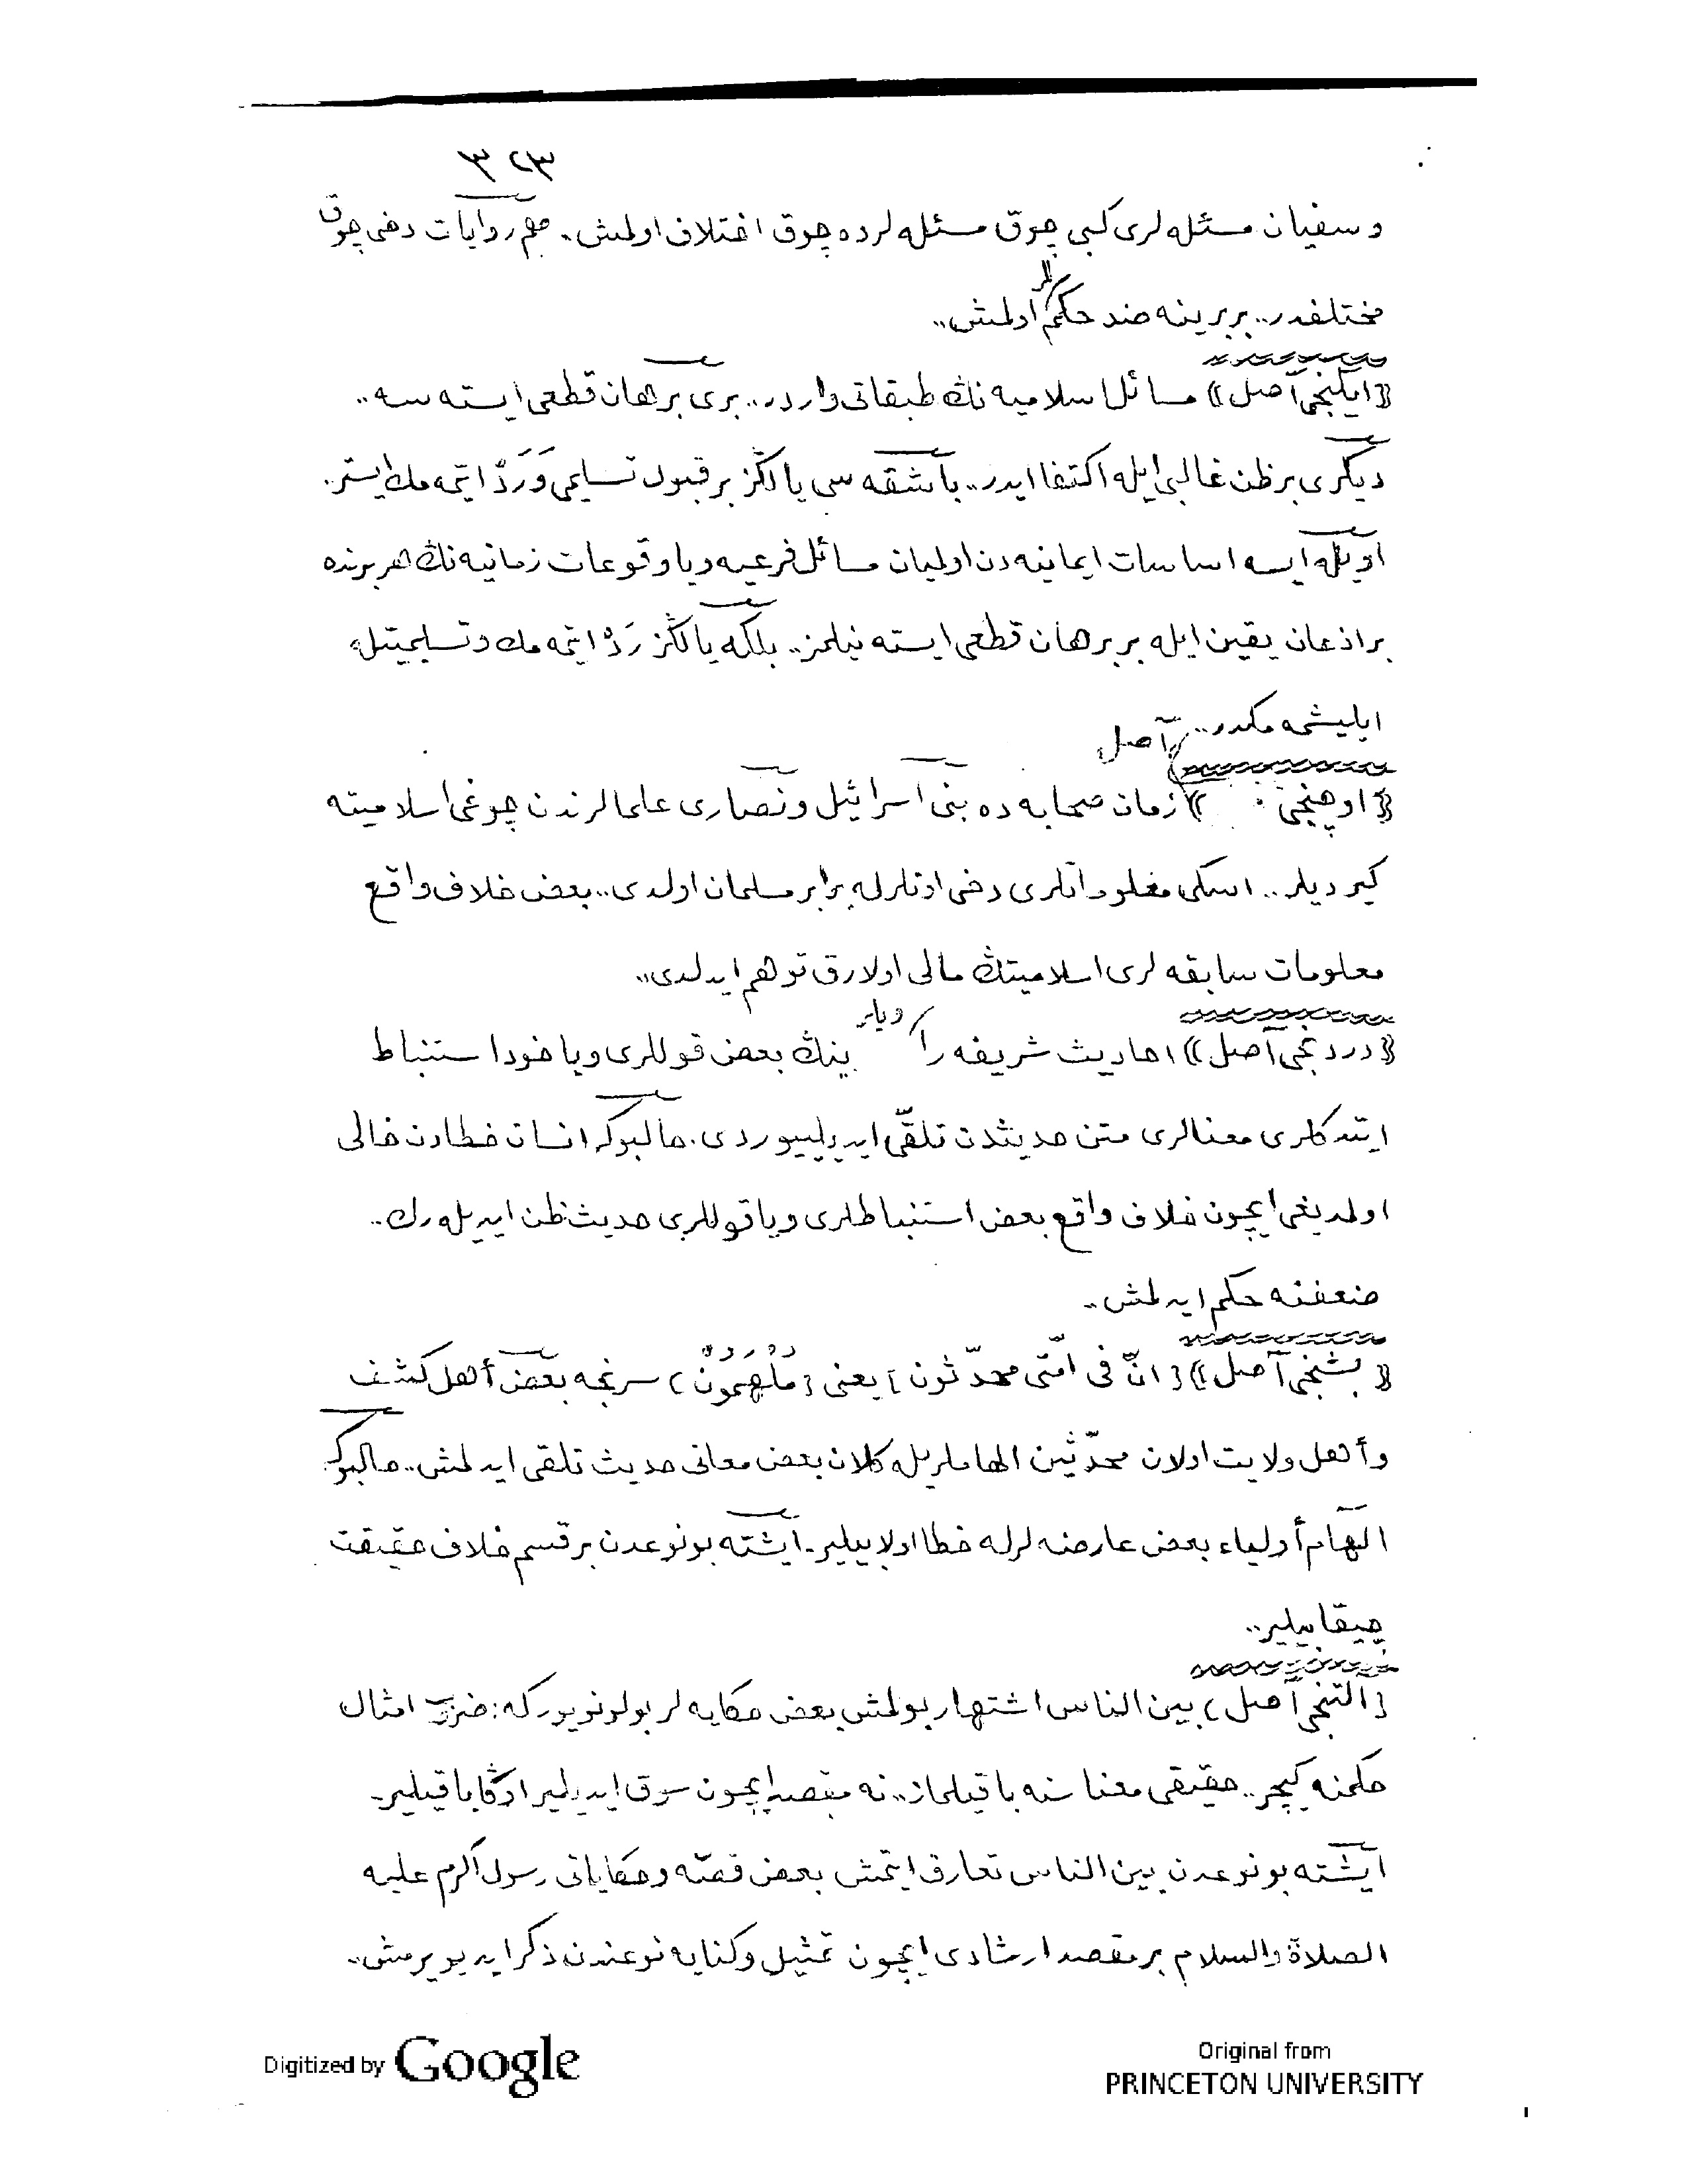 ٣٢٣
و سفیان مسئله لری كبی چوق مسئله لرده چوق اختلاف اولمش. هم روایات دخی چوق
مختلفدر.. بربرینه ضد حكملر اولمش..
﴿ایكنجی أصل﴾ مسائل اسلامیه نڭ طبقاتی واردر.. بری برهان قطعی ایسته سه..
دیگری بر ظن غالبی ایله اكتفا ایدر.. باشقه سی یالڭز بر قبول تسلیمی وَرَدّ ایتمه مك ایستر.
اویله ایسه اساسات ایمانیه دن اولمیان مسائل فرعیه ویا وقوعات زمانیه نڭ هر برنده
بر اذعان یقین ایله بر برهان قطعی ایسته نیلمز.. بلكه یالڭز رَدّ ایتمه مك و تسلیمیتله
ایلیشمه مكدر..
﴿اوچنجی أصل﴾ زمان صحابه ده بنی اسرائیل و نصاری علمالرندن چوغی اسلامیته
كیردیلر.. اسكی معلوماتلری دخی اونلرله برابر مسلمان اولدی.. بعض خلاف واقع
معلومات سابقه لری اسلامیتڭ مالی اولارق توهم ایدلدی..
﴿دردنجی أصل﴾ احادیث شریفه راویلرینڭ بعض قوللری ویا خود استنباط
ایتدكلری معنالری متن حدیثدن تلقّی ایدیلییوردی. حالبوكه انسان خطادن خالی
اولمدیغی ایچون خلاف واقع بعض استنباطلری ویا قوللری حدیث ظن ایدیله رك..
ضعفنه حكم ایدلمش..
﴿بشنجی أصل﴾ [انّ فی امّتی محدّثون] یعنی (مُلْهَمُونْ) سرنجه بعض أهل كشف
و أهل ولایت اولان محدّثین الهاملریله گلان بعض معانی حدیث تلقی ایدلمش.. حالبوكه
الهام أولیاء بعض عارضه لرله خطا اولابیلیر. ایشته بو نوعدن بر قسم خلاف حقیقت
چیقابیلیر..
(آلتنجی أصل) بین الناس اشتهار بولمش بعض حكایه لر بولونویور كه: ضرب امثال
حكمنه گچر.. حقیقی معناسنه باقیلماز.. نه مقصد ایچون سوق ایدیلیر اوڭا باقیلیر.
ایشته بو نوعدن بین الناس تعارف ایتمش بعض قصّه و حكایاتی رسول اكرم علیه
الصلاة والسلام بر مقصد ارشادی ایچون تمثیل و كنایه نوعندن ذكر ایدیویرمش..
Digitized by Google
Original from
PRINCETON UNIVERSITY